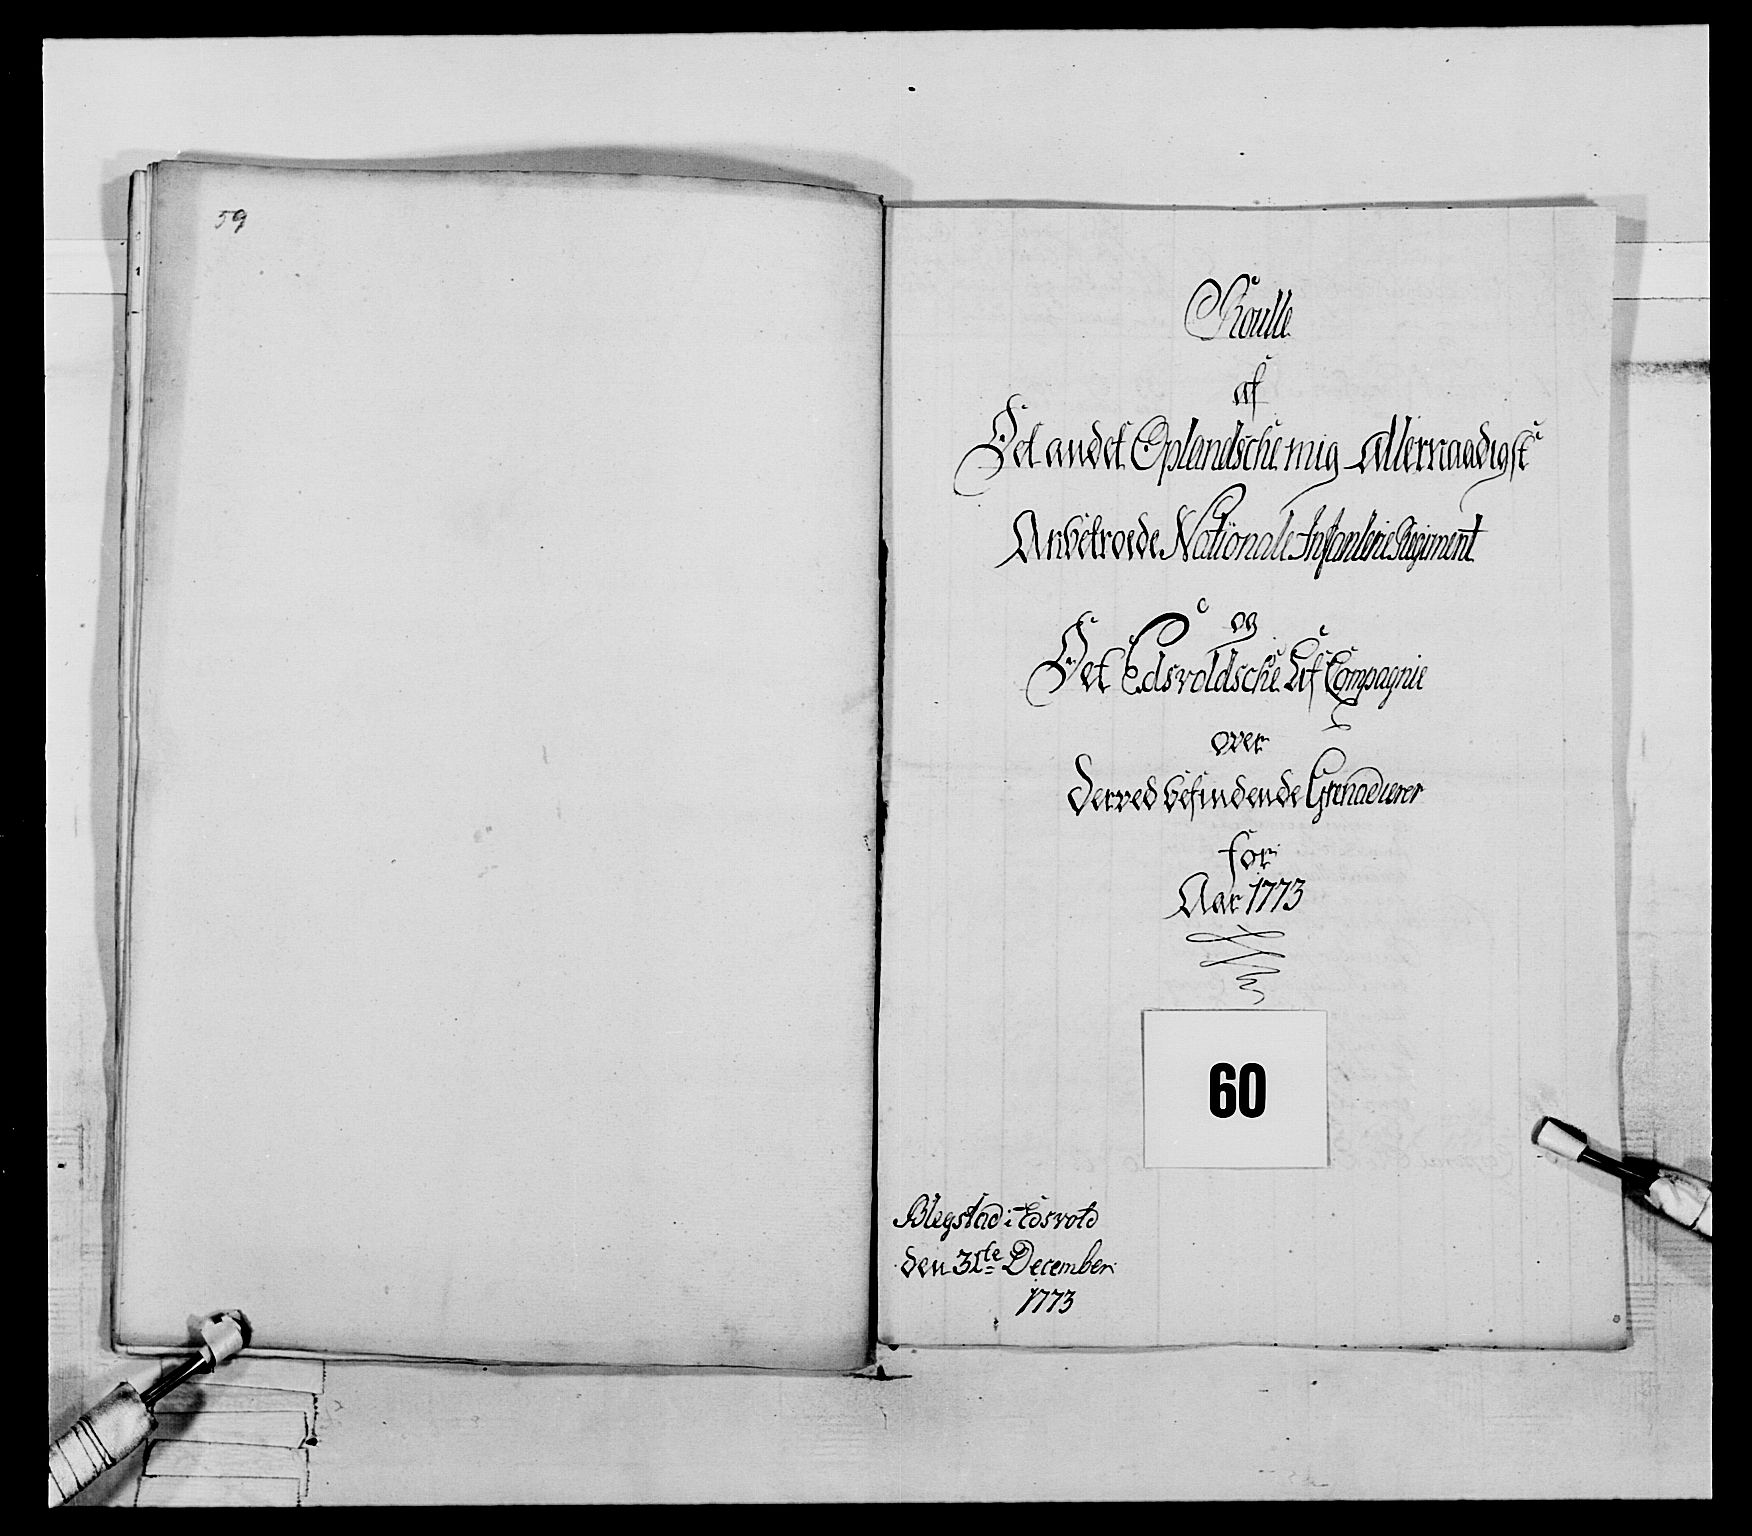 59
Roulle
af
Det andet Oplandsche mig Allernaadigst
Anbetroede Nationale Infanterie Regiment
og
Det Edsvoldsche Lif Compagnie
over
Derved befindende Grenaderer
for
Aar 1773
60
Blegstad i Edsvold
den 31te December
1773